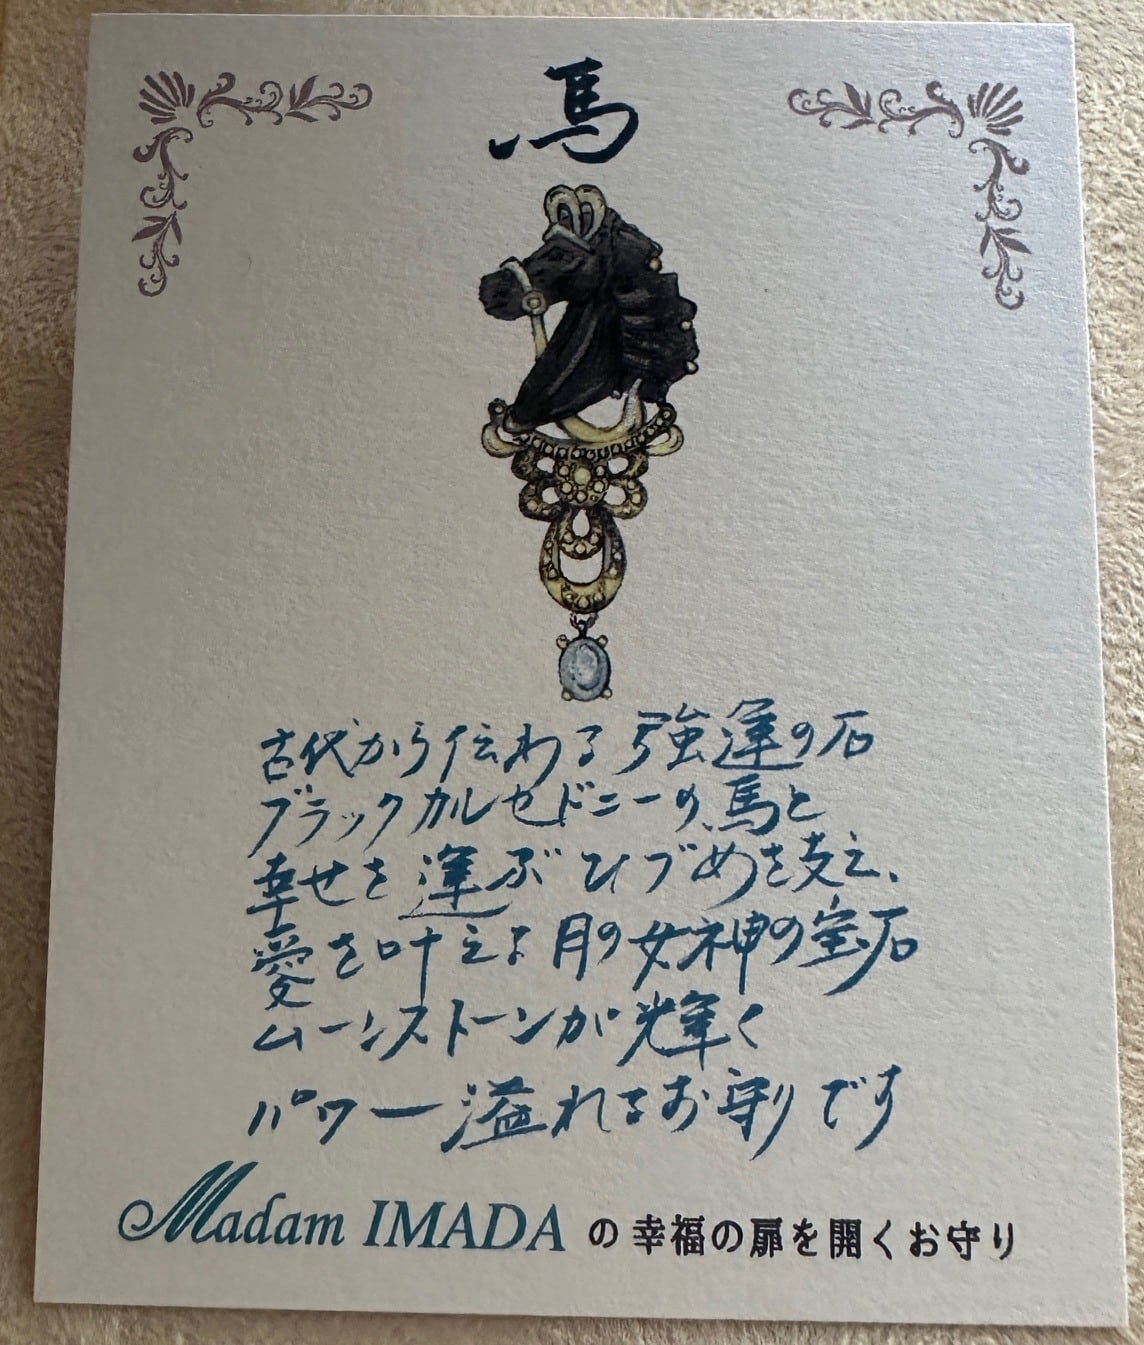 馬
古代から伝わる強運の石
ブラックカルセドニーの馬と
幸せを運ぶひづめを支え、
愛を叶える月の女神の宝石
ムーンストーンが輝く
パワー溢れるお守りです
Madam IMADA の幸福の扉を開くお守り